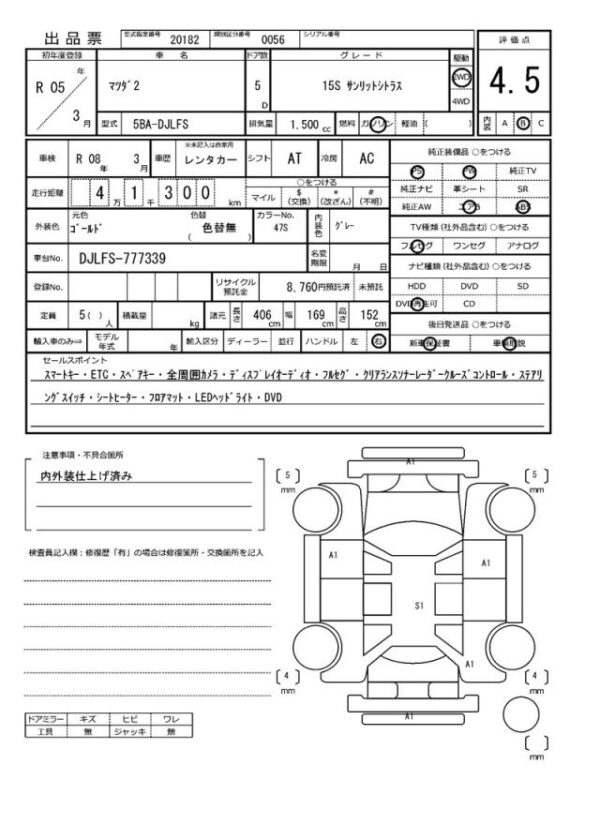 出品票 型式指定番号 20182 類別区分番号 0056 シリアル番号
評価点
4.5
内装 A B C
初年度登録 車名 ドア数 グレード 駆動
R 05 年 3 月 マツダ2 5 D 15S サンリットシトラス 2WD 4WD
型式 5BA-DJLFS 排気量 1,500 cc 燃料 ガソリン 軽油 ( )
車検 R 08 年 3 月 車歴 ※未記入は自家用 レンタカー シフト AT 冷房 AC
走行距離 4 万 1 千 300 km ○をつける マイル $ (交換) * (改ざん) # (不明)
外装色 元色 ゴールド 色替 ( 色替無 ) カラーNo. 47S 内装色 グレー
車台No. DJLFS-777339 名変期限 月 日
登録No. リサイクル預託金 8,760円預託済 未預託
定員 5 ( ) 人 積載量 kg 諸元 長さ 406 cm 幅 169 cm 高さ 152 cm
輸入車のみ⇒ モデル年式 年 輸入区分 ディーラー 並行 ハンドル 左 右
純正装備品 ○をつける
PS PW 純正TV
純正ナビ 革シート SR
純正AW エアB ABS
TV種類(社外品含む)○をつける
フルセグ ワンセグ アナログ
ナビ種類(社外品含む)○をつける
HDD DVD SD
DVD再生可 CD
後日発送品 ○をつける
新車保証書 車輌取説
セールスポイント
スマートキー・ETC・スペアキー・全周囲カメラ・ディスプレイオーディオ・フルセグ・クリアランスソナーレーダークルーズコントロール・ステアリ
ングスイッチ・シートヒーター・フロアマット・LEDヘッドライト・DVD
注意事項・不具合箇所
内外装仕上げ済み
検査員記入欄:修復歴「有」の場合は修復箇所・交換箇所を記入
ドアミラー キズ ヒビ ワレ
工具 無 ジャッキ 無
A1
5 mm
5 mm
A1
A1
S1
A1
4 mm
4 mm
A1
mm